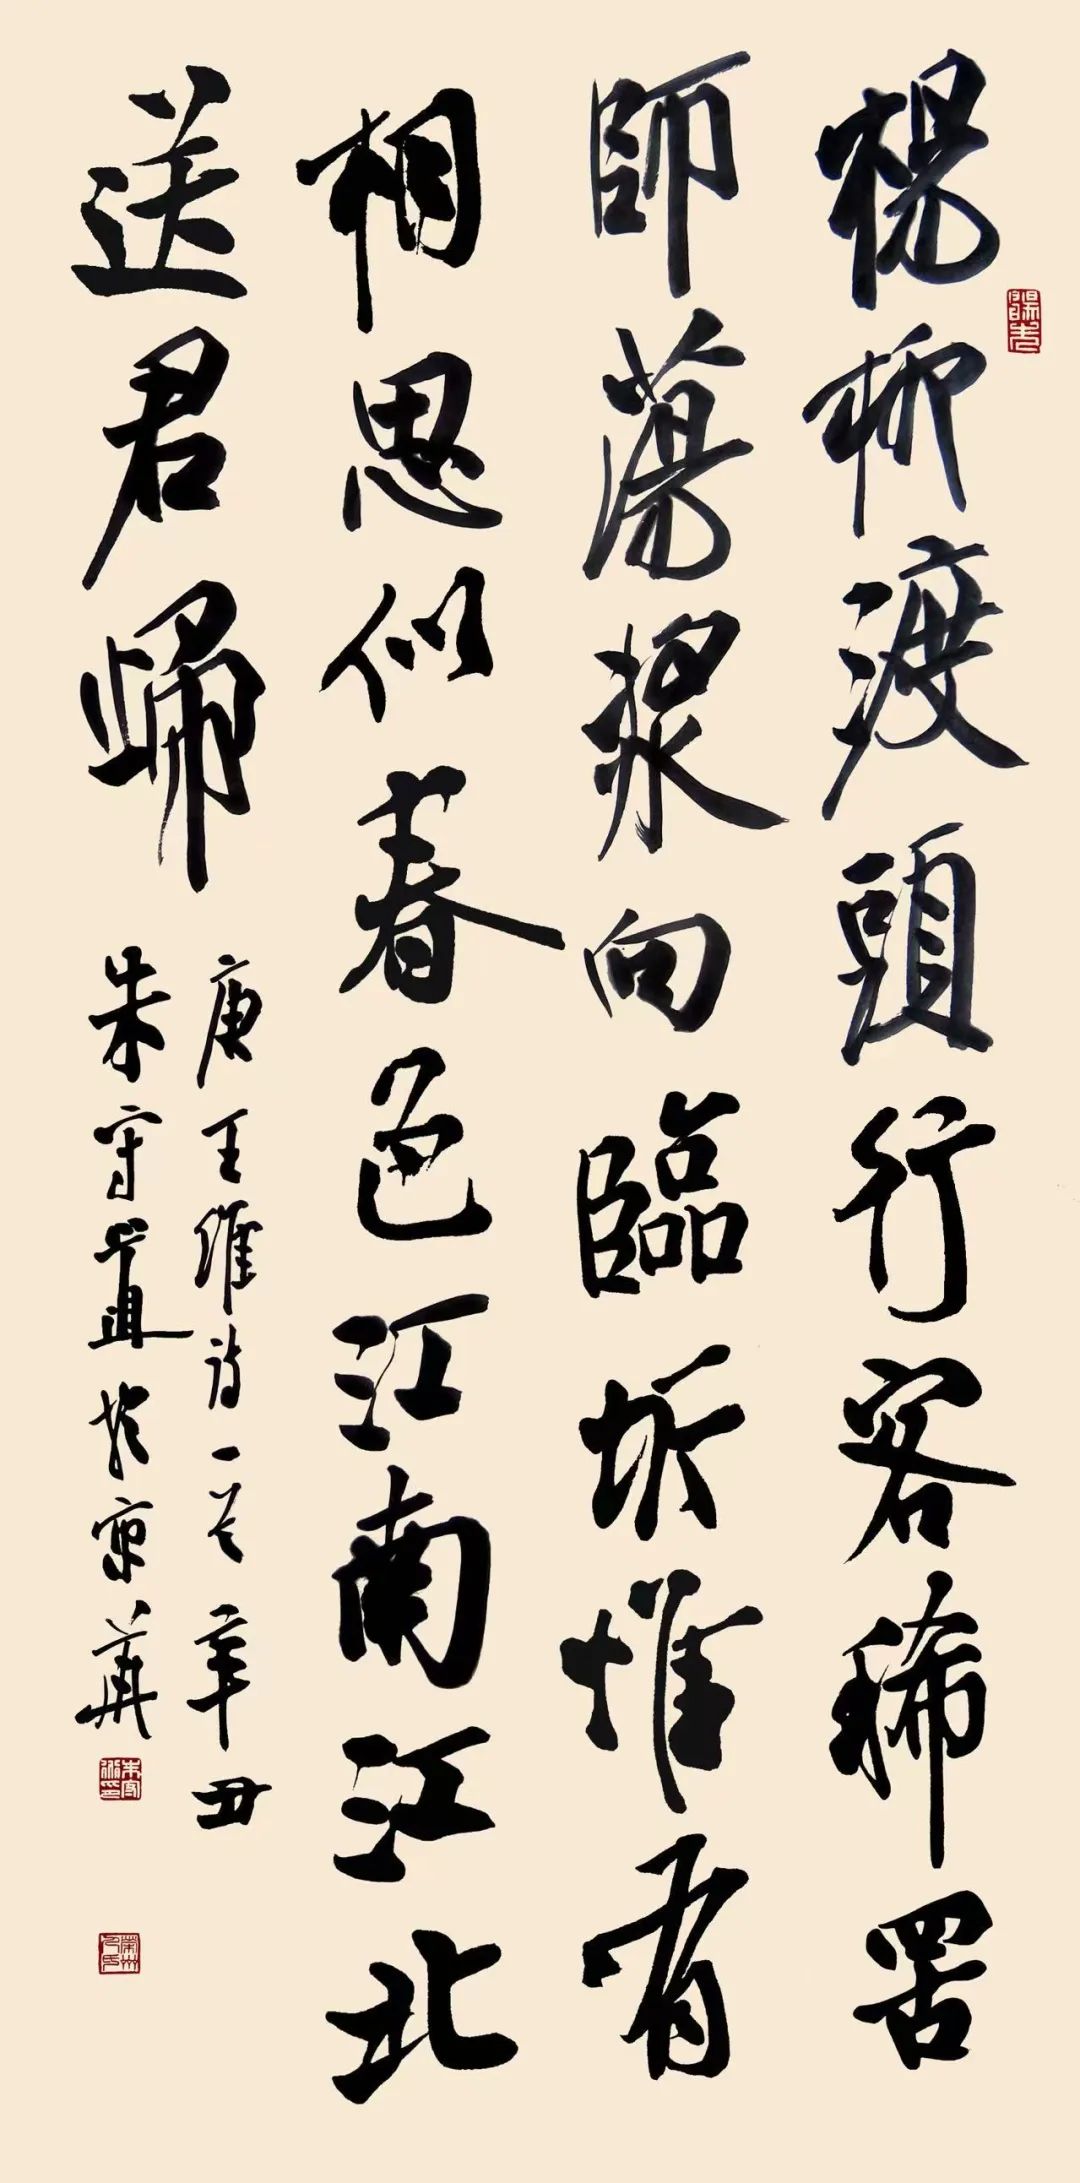 楊柳渡頭行客稀罟
師蕩槳向臨圻惟有
相思似春色江南江北
送君歸
唐王維詩一首辛丑
朱守道於京華